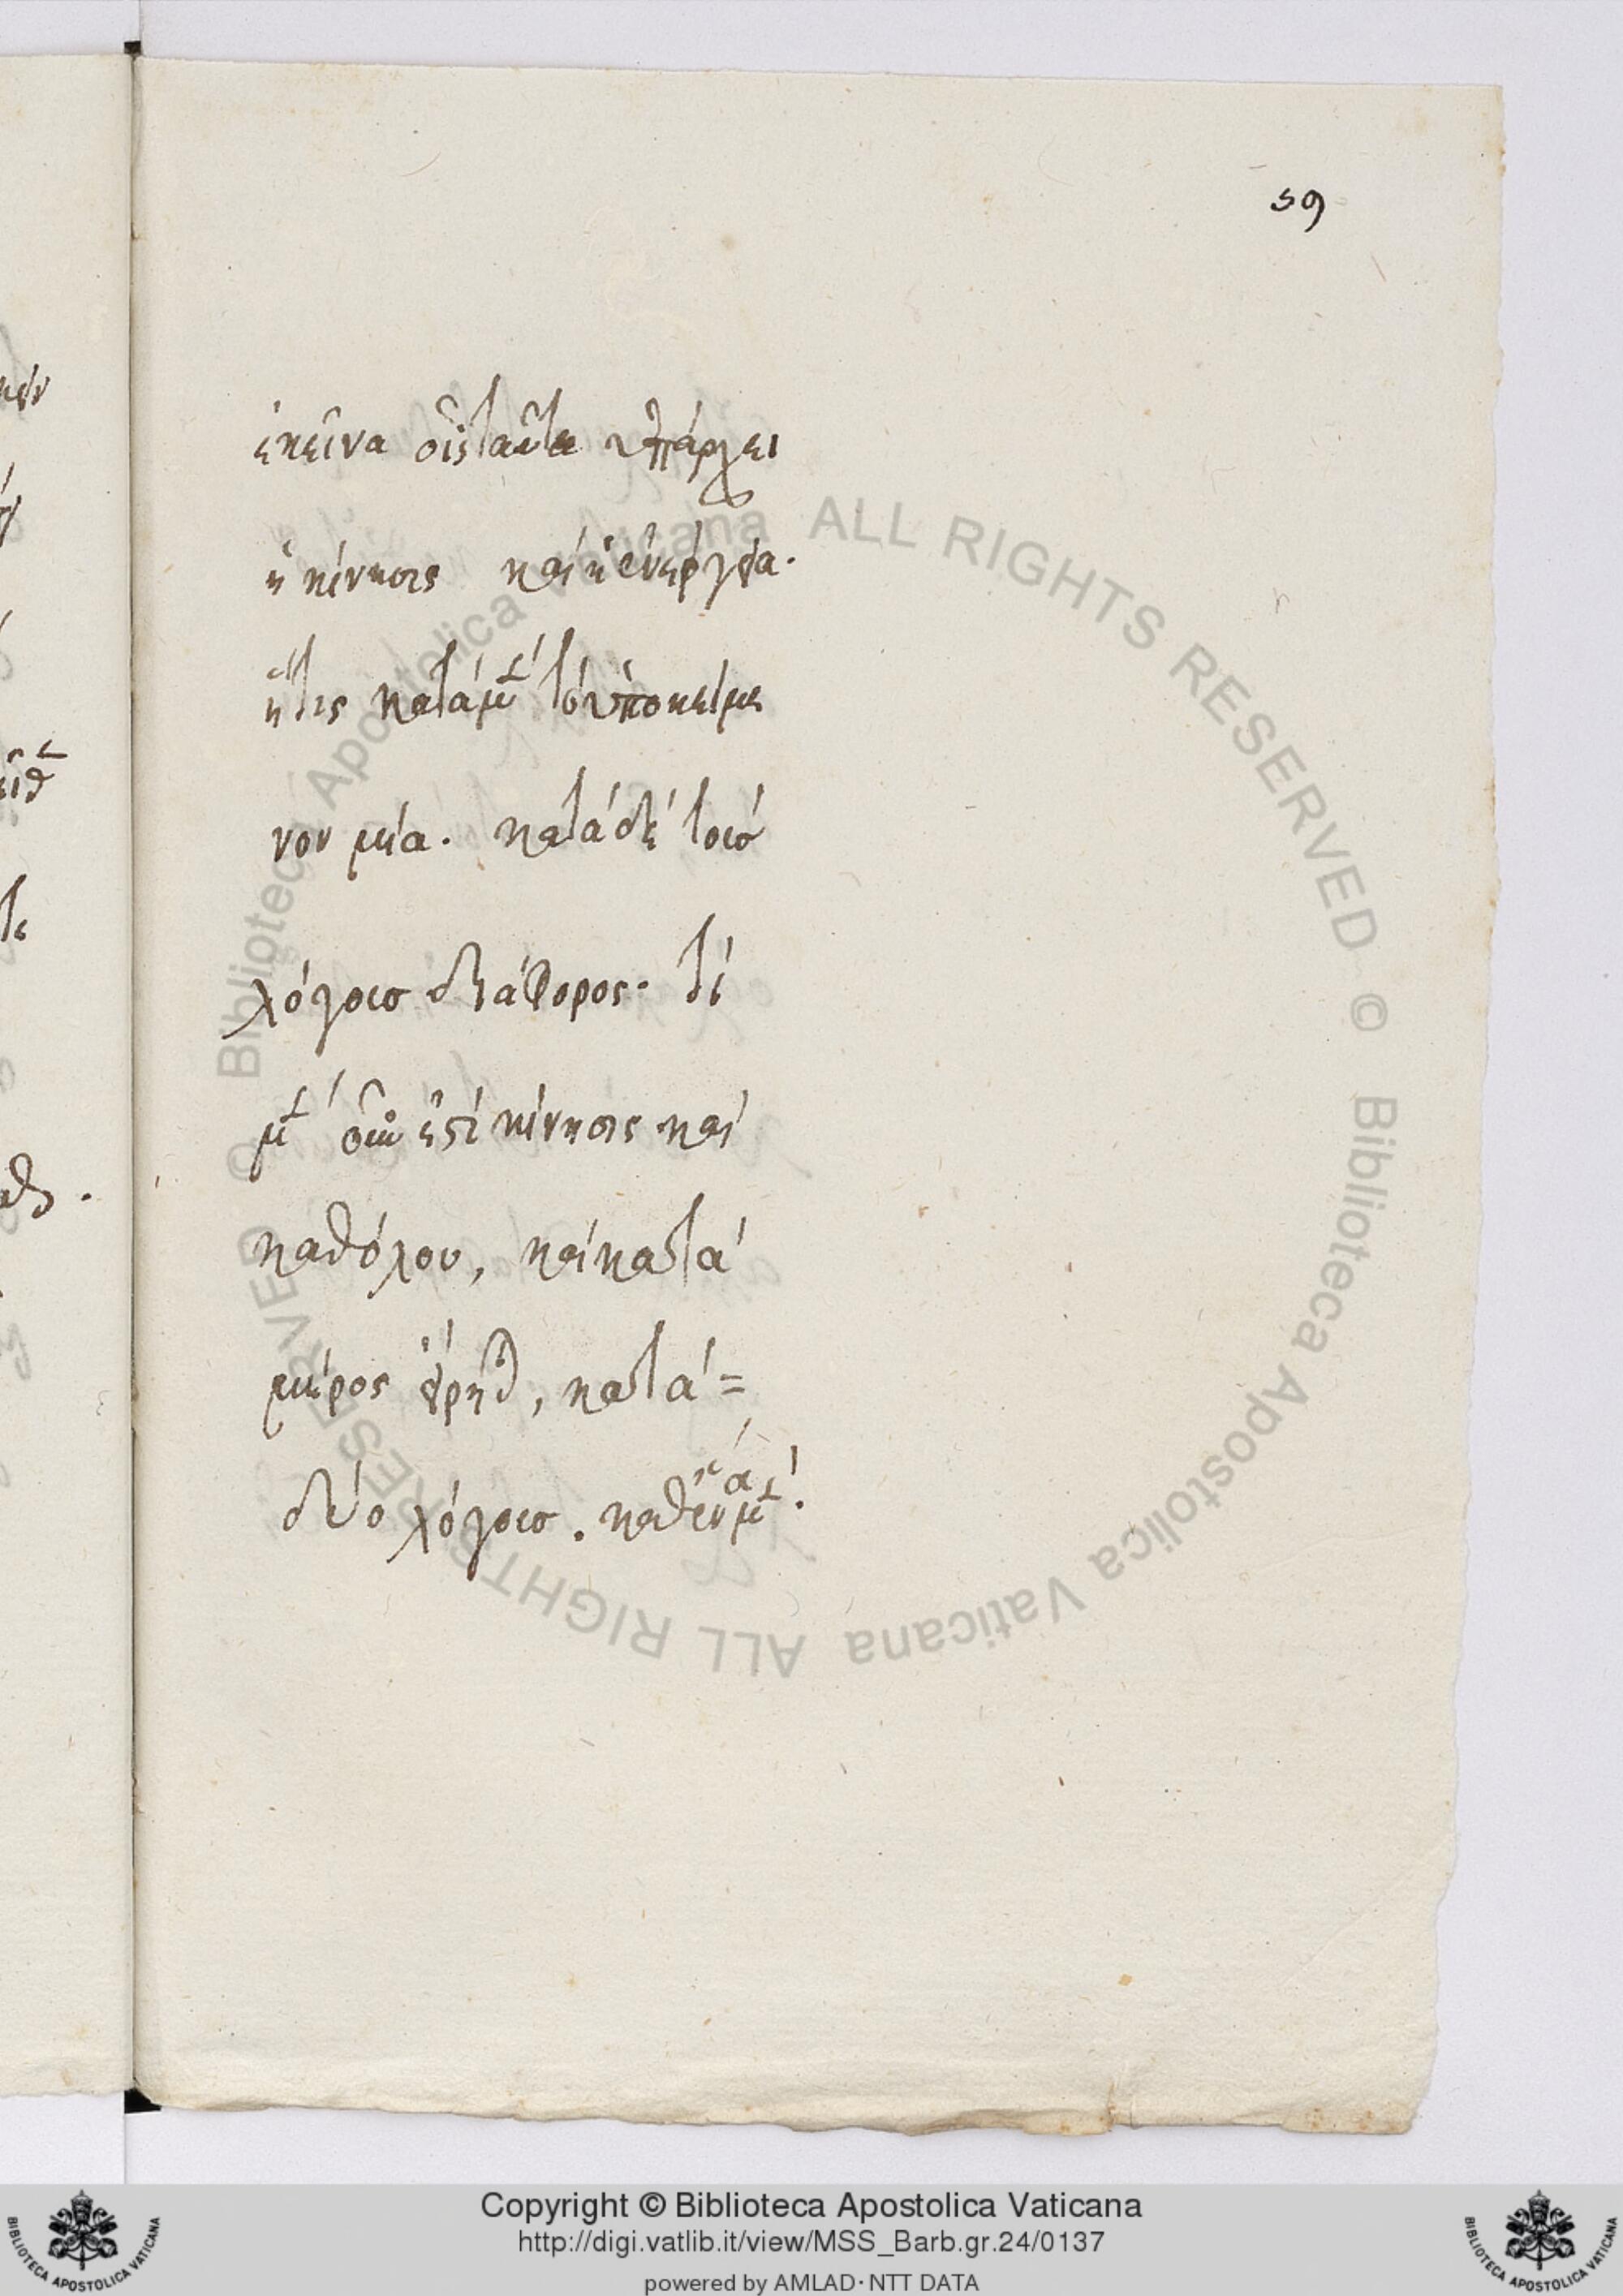 59
ἐκεῖνα οἷς ταῦτα ὑπάρχει
ἡ κίνησις καὶ ἡ ἐνέργεια.
ἥτις κατὰ μὲν τὸ ὑποκείμε
νον μία. κατὰ δὲ τοὺσ
λόγουσ διάφορος. τί
μὲν οὖν ἐστὶ κίνησις καὶ
καθόλου, καὶ κατὰ
μέρος εἴρηται, κατὰ=
δύο λόγουσ. καθ ἕνα μὲν.
Biblioteca Apostolica Vaticana ALL RIGHTS RESERVED © Biblioteca Apostolica Vaticana ALL RIGHTS RESERVED ©
Copyright © Biblioteca Apostolica Vaticana
http://digi.vatlib.it/view/MSS_Barb.gr.24/0137
powered by AMLAD·NTT DATA
BIBLIOTECA APOSTOLICA VATICANA
BIBLIOTECA APOSTOLICA VATICANA